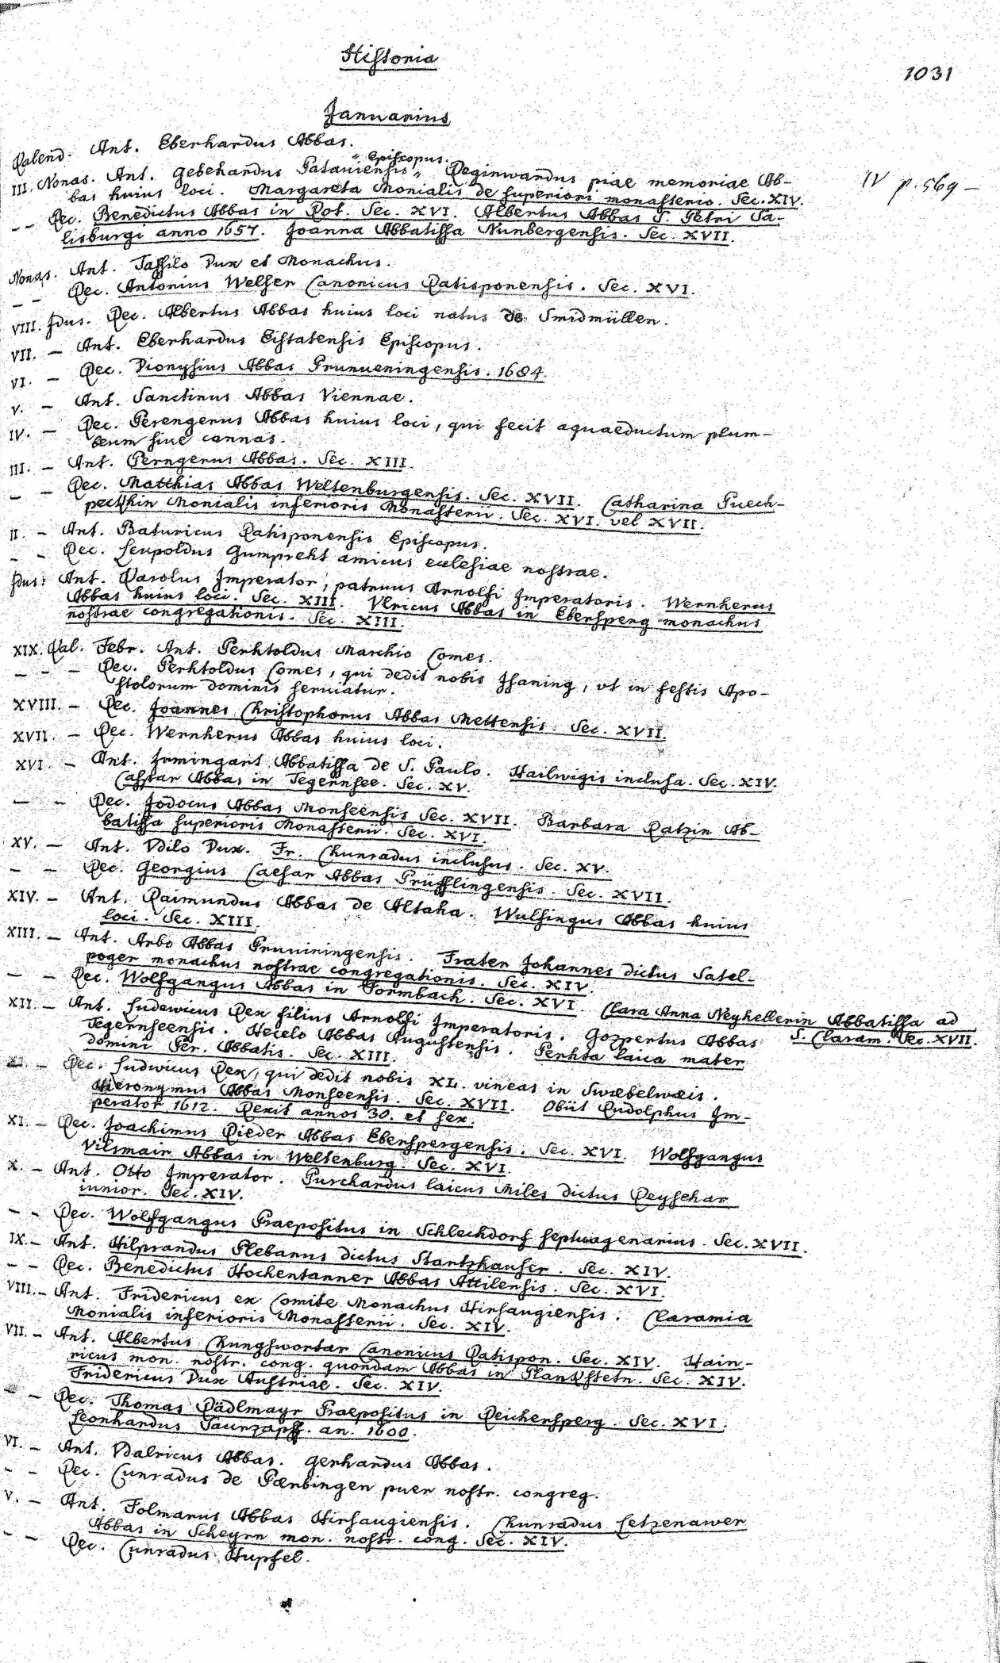 Historia
1031
Januarius
Kalend. Ant. Eberhardus Abbas.
III. Nonas. Ant. Gebehardus Pataviensis " Episcopus. Reginwardus piae memoriae Ab-
bas huius loci. Margareta Monialis de superiori monasterio. Sec. XIV.
IV p. 569 -
- - Rec. Benedictus Abbas in Rot. Sec. XVI. Albertus Abbas S. Petri Sa-
lisburgi anno 1657. Joanna Abbatissa Nunbergensis. Sec. XVII.
Nonas. Ant. Tassilo Dux et Monachus.
- - Rec. Antonius Welser Canonicus Ratisponensis. Sec. XVI.
VIII. Idus. Rec. Albertus Abbas huius loci natus de Smidmüllen.
VII. - Ant. Eberhardus Eistatensis Episcopus.
VI. - Rec. Dionysius Abbas Prunveningensis. 1684.
V. - Ant. Sanctinus Abbas Viennae.
IV. - Rec. Perengerus Abbas huius loci, qui fecit aquaeductum plum-
beum sive cannas.
III. - Ant. Perngerus Abbas. Sec. XIII.
- - Rec. Matthias Abbas Weltenburgensis. Sec. XVII. Catharina Puech-
peckhin Monialis inferioris Monasterii. Sec. XVI. vel XVII.
II. - Ant. Baturicus Ratisponensis Episcopus.
- - Rec. Leupoldus Gumpreht amicus ecclesiae nostrae.
Idus. Ant. Karolus Imperator, patruus Arnolfi Imperatoris. Wernherus
Abbas huius loci. Sec. XIII. Vlricus Abbas in Ebersperg monachus
nostrae congregationis. Sec. XIII.
XIX. Kal. Febr. Ant. Perhtoldus Marchio Comes.
- - - Rec. Perhtoldus Comes, qui dedit nobis Isaning, vt in festis Apo-
stolorum dominis serviatur.
XVIII. - Rec. Joannes Christophorus Abbas Mettensis. Sec. XVII.
XVII. - Rec. Wernherus Abbas huius loci.
XVI. - Ant. Irmingart Abbatissa de S. Paulo. Hailwigis inclusa. Sec. XIV.
Caspar Abbas in Tegernsee. Sec. XV.
- - Rec. Jodocus Abbas Monseensis Sec. XVII. Barbara Ratzin Ab-
batissa superioris Monasterii. Sec. XVI.
XV. - Ant. Vdilo Dux. Fr. Chunradus inclusus. Sec. XV.
- - Rec. Georgius Caesar Abbas Prüfflingensis. Sec. XVII.
XIV. - Ant. Raimundus Abbas de Altaha. Wulfingus Abbas huius
loci. Sec. XIII.
XIII. - Ant. Arbo Abbas Pruviningensis. Frater Johannes dictus Satel-
poger monachus nostrae congregationis. Sec. XIV.
- - Rec. Wolfgangus Abbas in Formbach. Sec. XVI. Clara Anna Neghellerin Abbatissa ad
S. Claram. Sec. XVII.
XII. - Ant. Ludewicus Rex filius Arnolfi Imperatoris. Gozpertus Abbas
Tegernseensis. Hecelo Abbas Augustensis. Perhta laica mater
domini Per. Abbatis. Sec. XIII.
- Rec. Ludwicus Rex, qui dedit nobis XL. vineas in Swæbelwæis.
Hieronymus Abbas Monseensis. Sec. XVII. Obiit Rudolphus Im-
perator 1612. Rexit annos 30. et sex.
XI. - Rec. Joachimus Rieder Abbas Eberspergensis. Sec. XVI. Wolfgangus
Vilsmair Abbas in Weltenburg. Sec. XVI.
X. - Ant. Otto Imperator. Purchardus laicus Miles dictus Reysehar
iunior. Sec. XIV.
- - Rec. Wolfgangus Praepositus in Schlechdorf septuagenarius. Sec. XVII.
IX. - Ant. Hilprandus Plebanus dictus Startzhauser. Sec. XIV.
- - Rec. Benedictus Hochentanner Abbas Attilensis. Sec. XVI.
VIII. - Ant. Fridericus ex Comite Monachus Hirsaugiensis. Claramia
Monialis inferioris Monasterii. Sec. XIV.
VII. - Ant. Albertus Chungswortar Canonicus Ratispon. Sec. XIV. Hain-
ricus mon. nostr. cong. quondam Abbas in Plankstetn. Sec. XIV.
Fridericus Dux Austriae. Sec. XIV.
- Rec. Thomas Rädlmayr Praepositus in Reichersperg. Sec. XVI.
Leonhardus Taurzapff. an. 1600.
VI. - Ant. Vdalricus Abbas. Gerhardus Abbas.
- - Rec. Cunradus de Pærbingen puer nostr. congreg.
V. - Ant. Folmarus Abbas Hirsaugiensis. Chunradus Cetzenawer
Abbas in Scheyrn mon. nostr. cong. Sec. XIV.
- - Rec. Cunradus Hupfel.